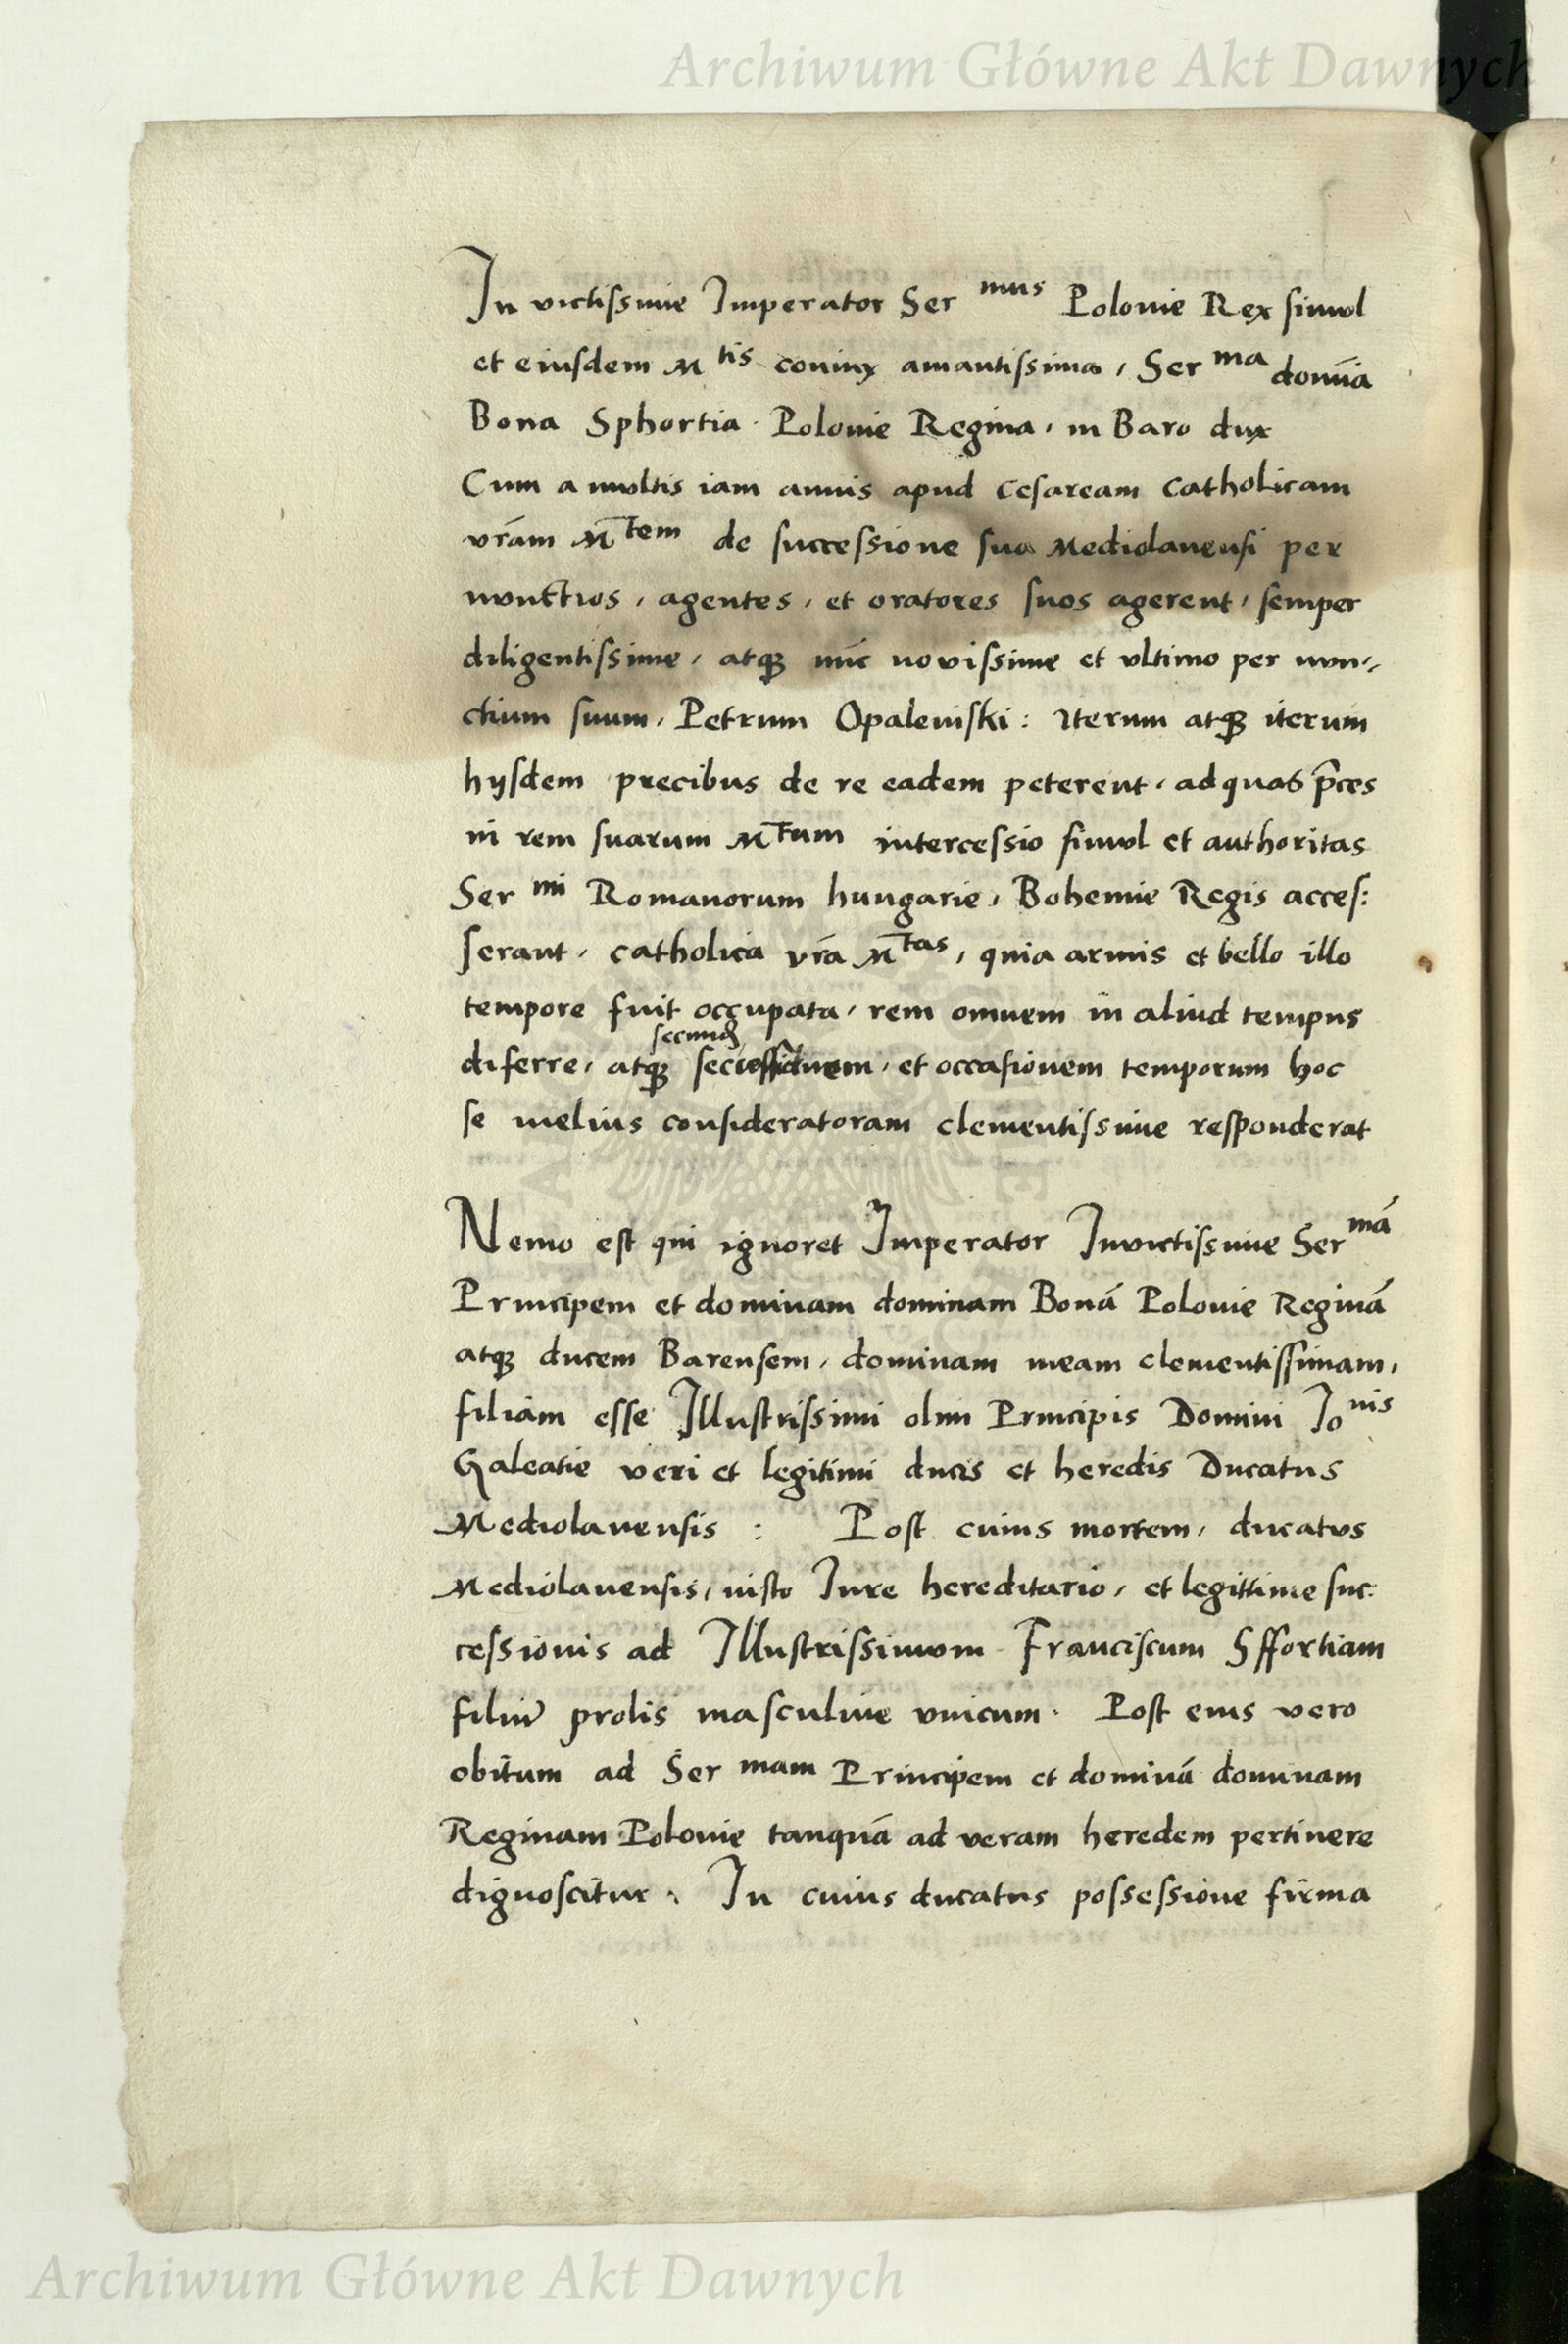 Archiwum Główne Akt Dawnych
In victissime Imperator Ser mus Polonie Rex simul
et eiusdem M tis coniux amantissima, Ser ma domīa
Bona Sphortia Polonie Regina, in Baro dux
Cum a multis iam annis apud Cesaream Catholicam
vrām M tem de successione sua Mediolanensi per
nunctios, agentes, et oratores suos agerent, semper
diligentissime, atq3 nūc novissime et ultimo per nun-
ctium suum, Petrum Opalenski: Iterum atq3 iterum
hysdem precibus de re eadem peterent, ad quas p̄ces
in rem suarum M tum intercessio simul et authoritas
Ser mi Romanorum hungarie, Bohemie Regis acces:
serant, catholica vrā M tas, quia armis et bello illo
tempore fuit occupata, rem omnem in aliud tempus
secund
diferre, atq3 et occasionem temporum hoc
se melius consideraturam clementissime responderat
Nemo est qui ignoret Imperator Invictissime Ser mā
Principem et dominam dominam Bonā Polonie Reginā
atq3 ducem Barensem, dominam meam clementissimam,
filiam esse Illustrissimi olim Principis Domini Jo nis
Galeatie veri et legitimi ducis et heredis Ducatus
Mediolanensis : Post cuius mortem, ducatus
Mediolanensis, iusto Iure hereditario, et legittime suc:
cessionis ad Illustrissimum Franciscum Sffortiam
filiū prolis masculine unicum. Post eius vero
obitum ad Ser mam Principem et dominā dominam
Reginam Polonie tanquā ad veram heredem pertinere
dignoscitur. In cuius ducatus possessione firma
Archiwum Główne Akt Dawnych